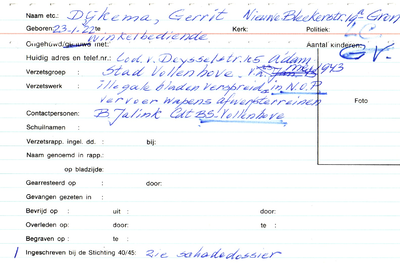 Naam etc.: Dijkema, Gerrit Nieuwe Blekerstr. Gron
Geboren: 23-1-22 te Kerk: Politiek:
winkelbediende
Ongehuwd/gehuwd met: Aantal kinderen:
Huidig adres en telef.nr.: Lod. v. Deysselstr. 165 A'dam G.V.
Verzetsgroep : Stad Vollenhove. v.a. mei 1943
Verzetswerk : illegale bladen verspreid in N.O.P.
vervoer wapens afwerpterreinen Foto
Contactpersonen: B. Jalink Cdt BS-Vollenhove
Schuilnaam :
Verzetsrapp. ingel. dd. : bij:
Naam genoemd in rapp.:
op bladzijde:
Gearresteerd op : door:
Gevangen gezeten in :
Bevrijd op : uit : door:
Overleden op: door: te :
Begraven op : te :
Ingeschreven bij de Stichting 40/45: zie schadedossier